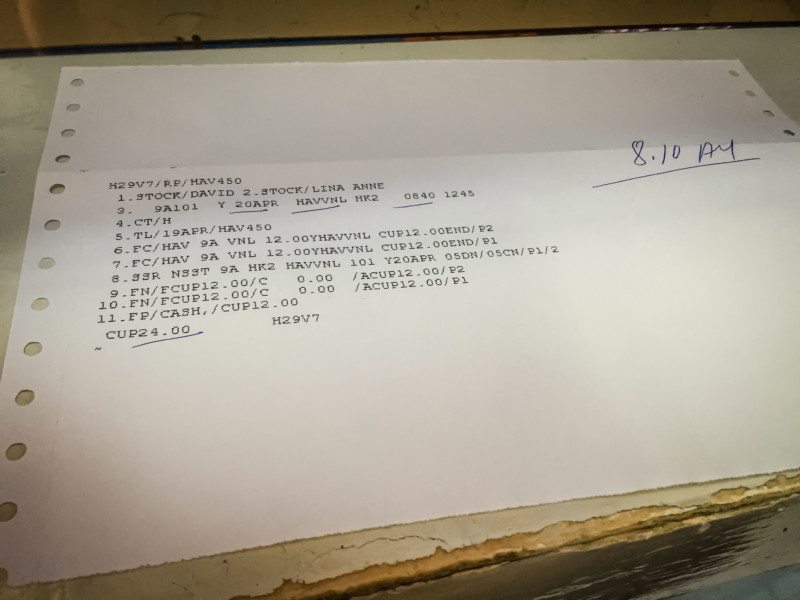 8.10 AM
H29V7/RP/HAV450
1.STOCK/DAVID 2.STOCK/LINA ANNE
3. 9A101 Y 20APR HAVVNL HK2 0840 1245
4.CT/H
5.TL/19APR/HAV450
6.FC/HAV 9A VNL 12.00YHAVVNL CUP12.00END/P2
7.FC/HAV 9A VNL 12.00YHAVVNL CUP12.00END/P1
8.SSR NSST 9A HK2 HAVVNL 101 Y20APR 05DN/05CN/P1/2
9.FN/FCUP12.00/C 0.00 /ACUP12.00/P2
10.FN/FCUP12.00/C 0.00 /ACUP12.00/P1
11.FP/CASH,/CUP12.00
CUP24.00 H29V7
~